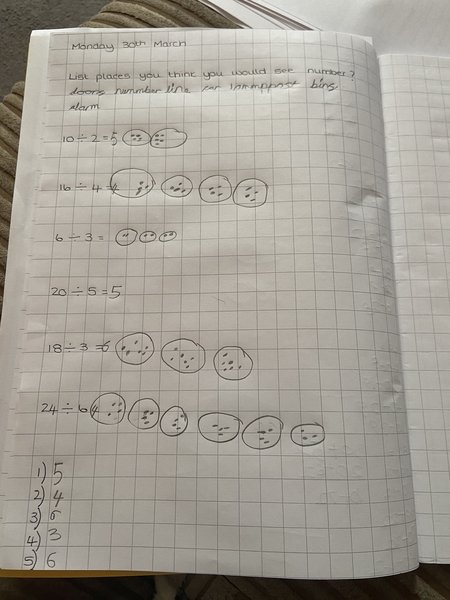 Monday 30th March
List places you think you would see number?
doors nummber line car lammppost bins
alarm
10 ÷ 2 = 5
16 ÷ 4 = 4
6 ÷ 3 =
20 ÷ 5 = 5
18 ÷ 3 = 6
24 ÷ 6 4
1) 5
2) 4
3) 6
4) 3
5) 6